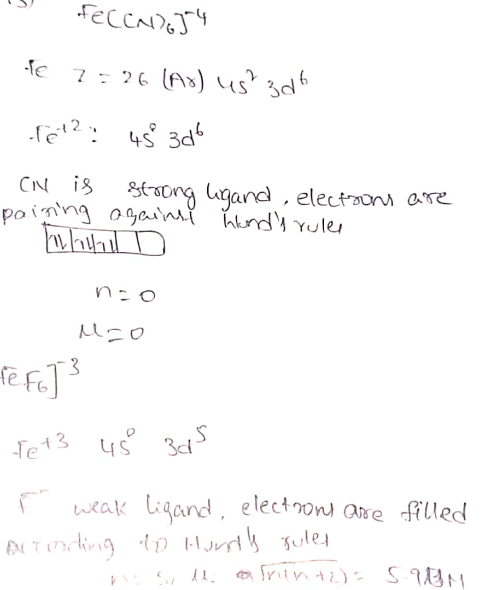 Fe(CN)6]-4
Fe Z = 26 (Ar) 4s² 3d⁶
Fe+2: 4s⁰ 3d⁶
CN is strong ligand, electrons are
pairing against hund's rules
n=0
μ=0
Fe F6]-3
Fe+3 4s⁰ 3d⁵
F⁻ weak ligand, electrons are filled
according to Hund's rules
√n(n+2) = 5.9 BM